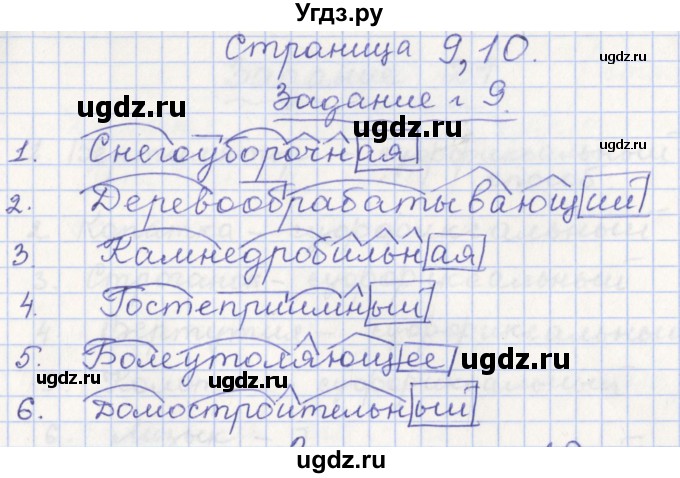 Угдз.ру
Страница 9, 10.
ugdz.ru
ugdz.ru
Задание г 9.
ugdz.ru
1. Снегоуборочная
2. Деревообрабатывающий
3. Камнедробильная
4. Гостеприимный
ugdz.ru
5. Болеутоляющее
ugdz.ru
ugdz.ru
6. Домостроительный
ugdz.ru